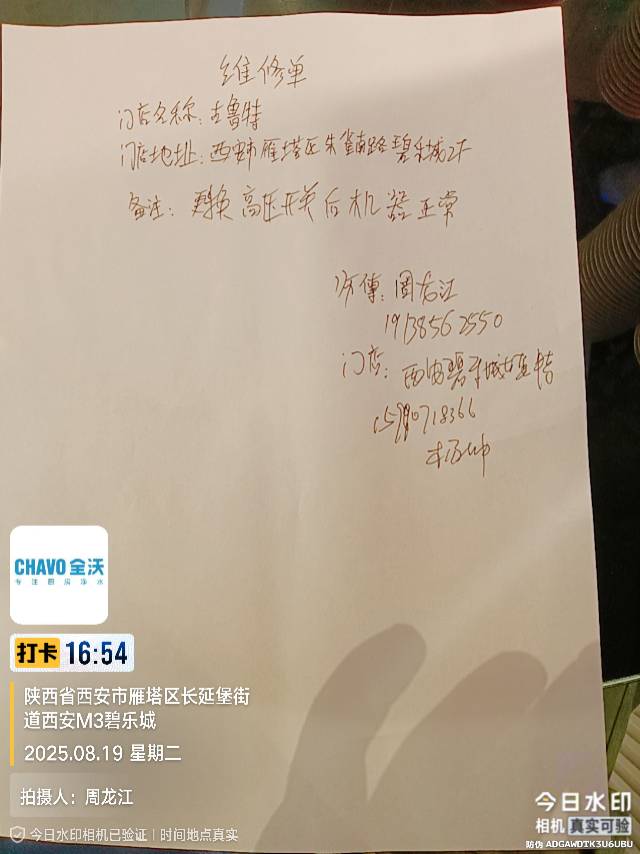 维修单
门店名称：古鲁特
门店地址：西安市雁塔区朱雀南路碧乐城2F
备注：更换高压开关后机器正常
师傅：周龙江
19138562550
门店：西安碧乐城古鲁特
718366
CHAVO全沃
专注厨房净水
打卡 16:54
陕西省西安市雁塔区长延堡街
道西安M3碧乐城
2025.08.19 星期二
拍摄人：周龙江
今日水印相机已验证 时间地点真实
今日水印
相机 真实可验
防伪 ADGAWDTK3U6UBU